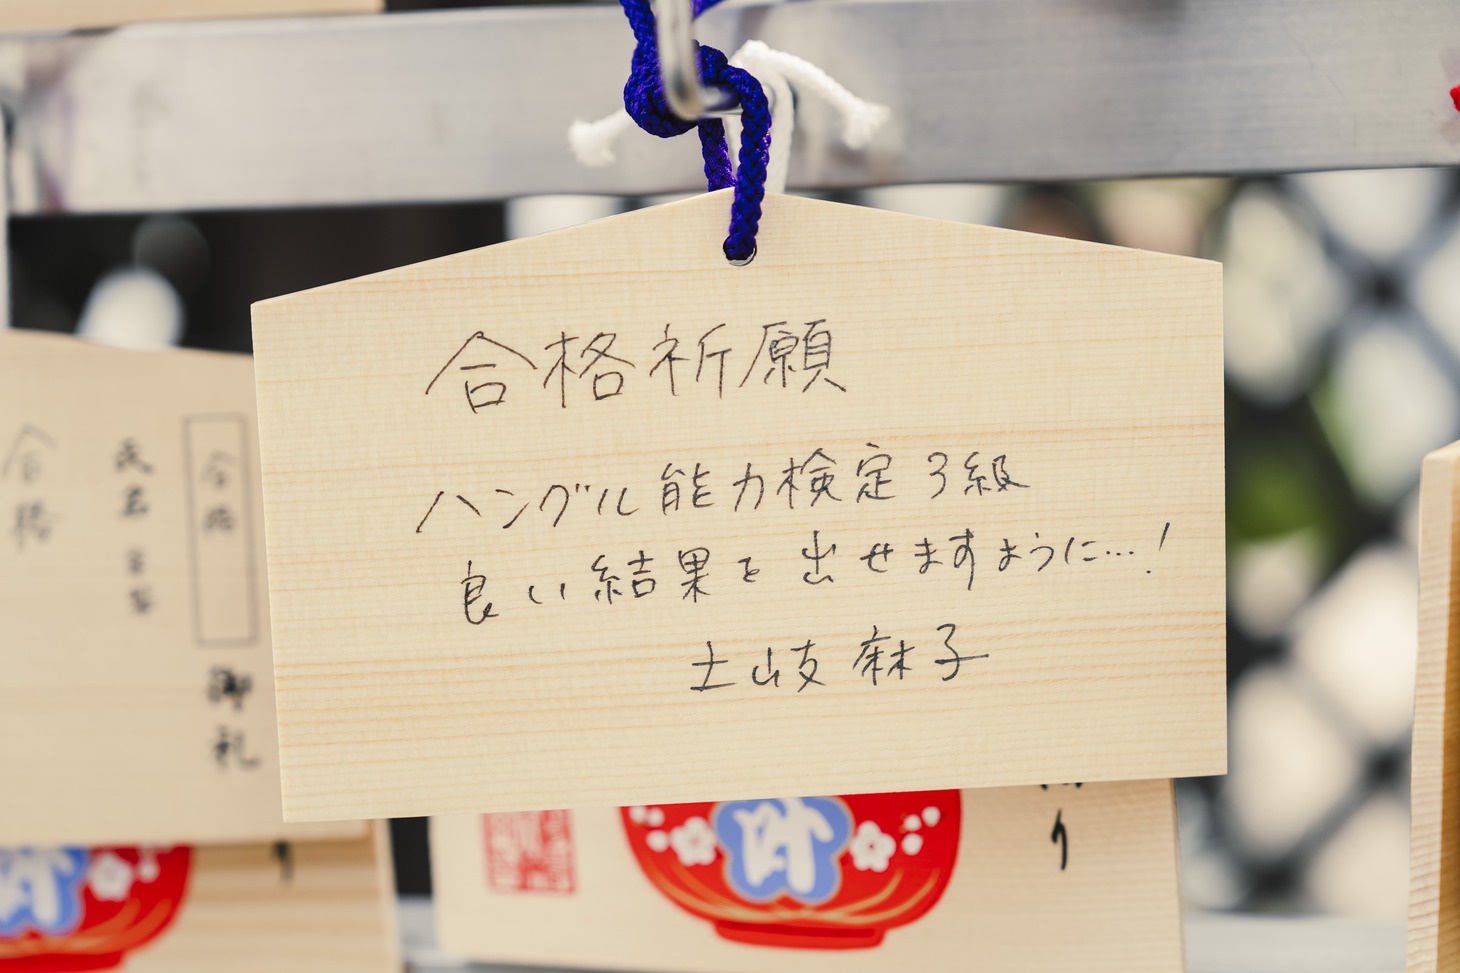 合格祈願
ハングル能力検定3級
良い結果を出せますように…!
土岐麻子
合格
氏名
合格
御礼
叶
叶
り